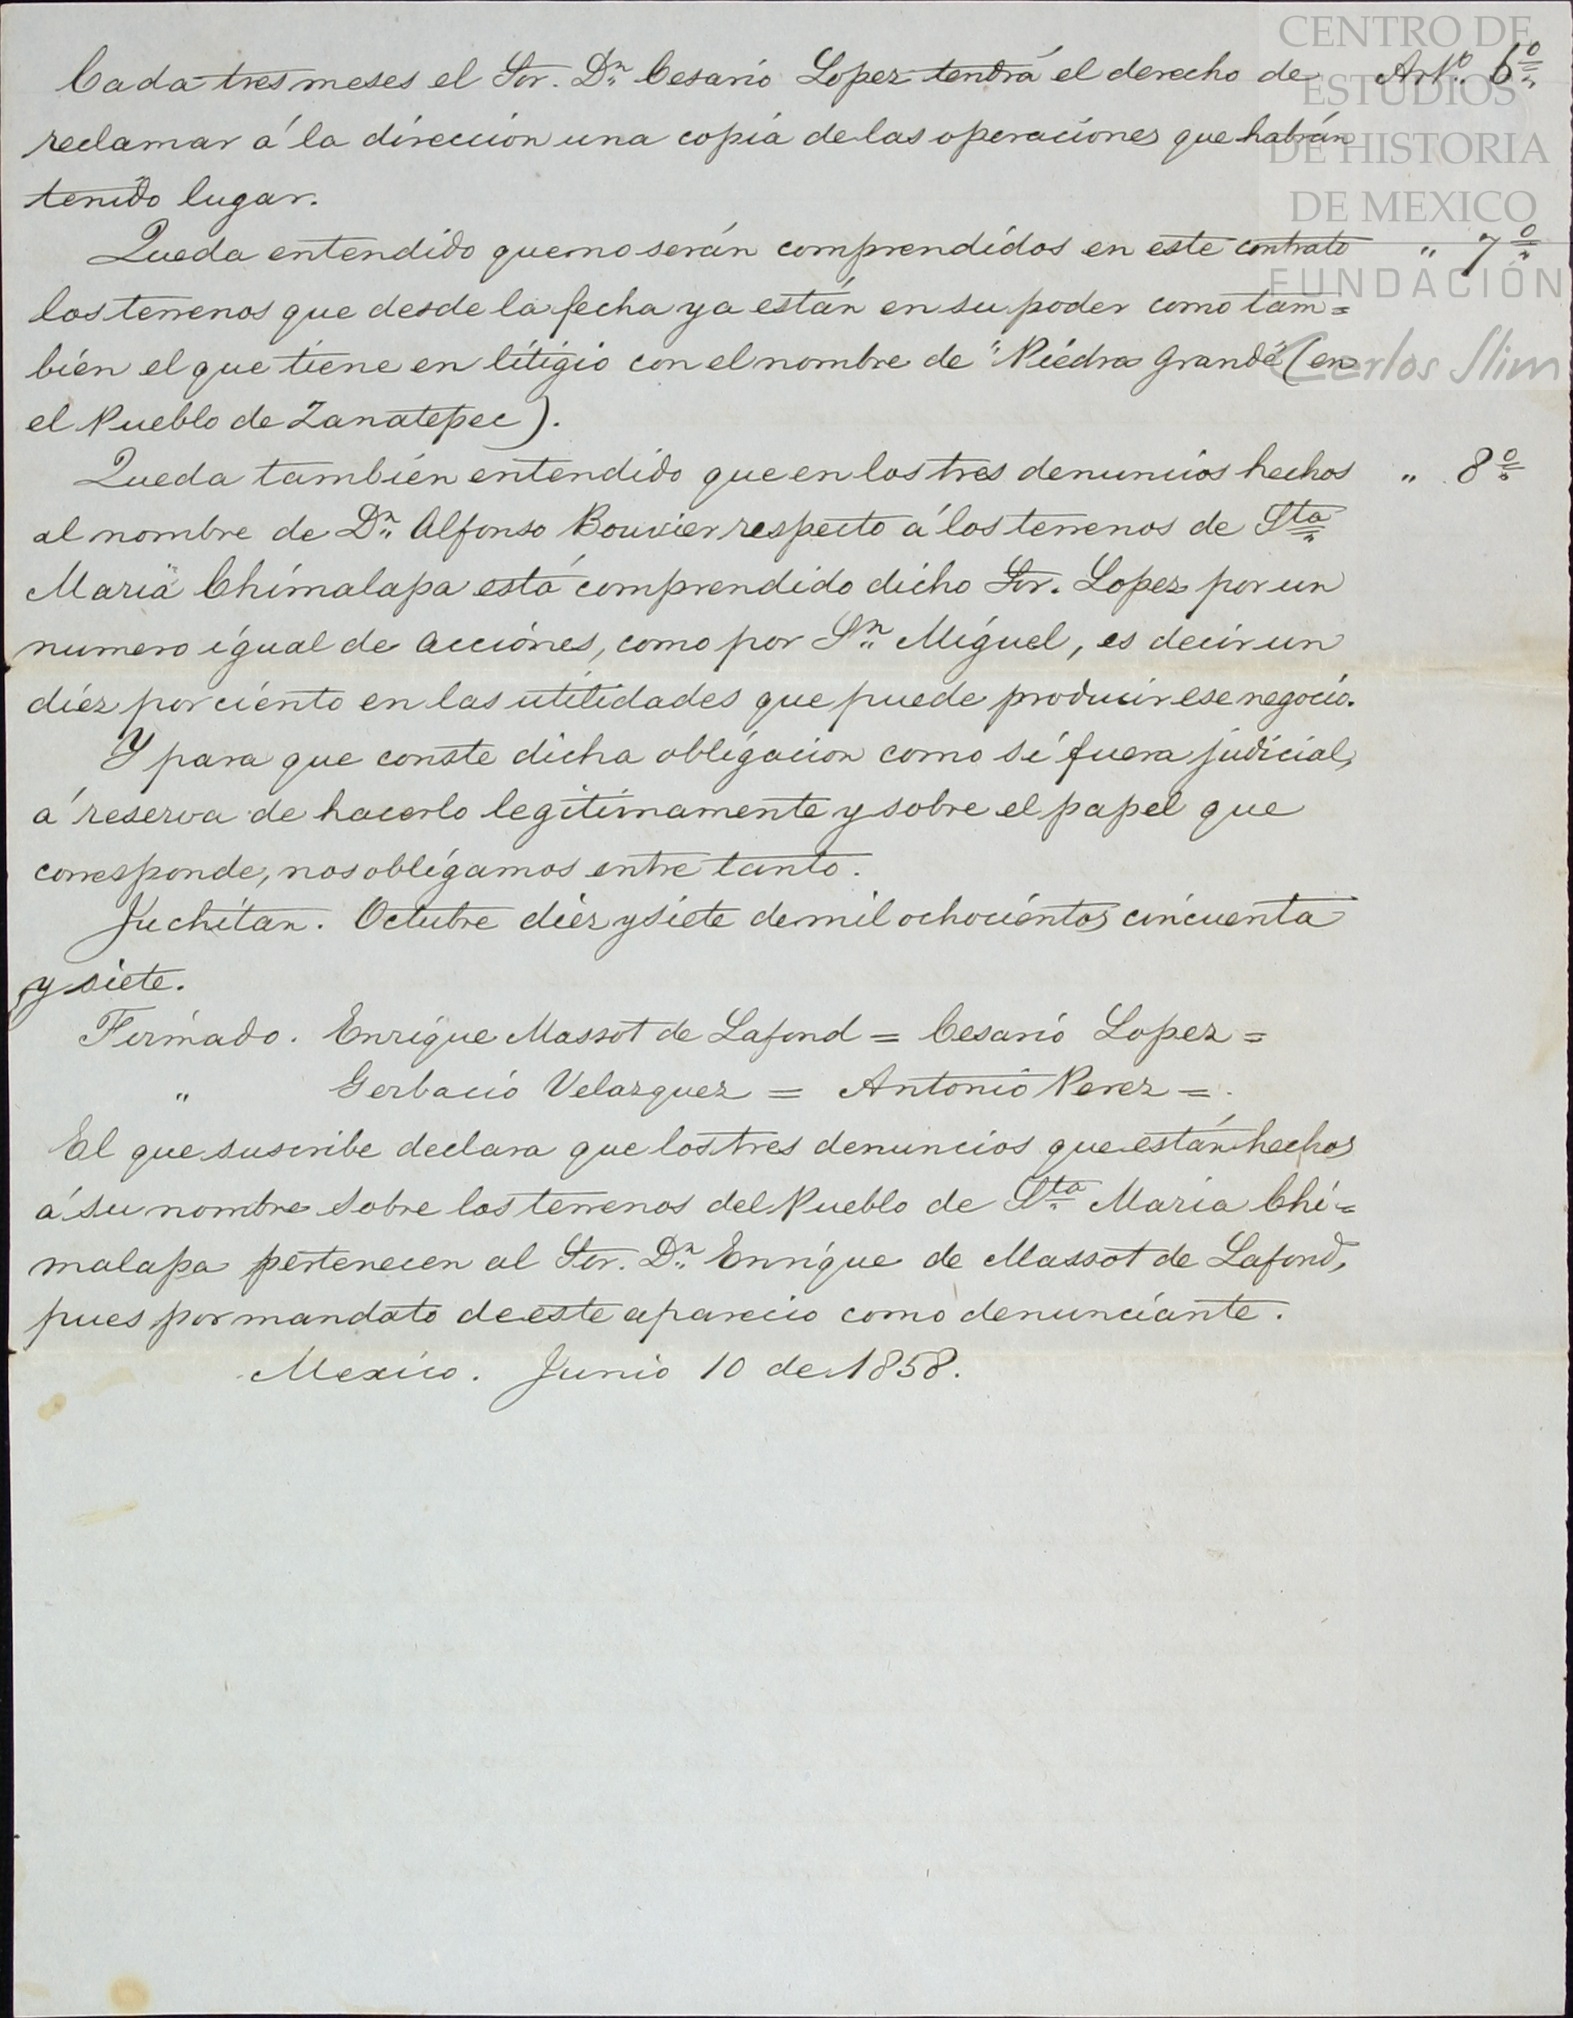 Cada tres meses el Sor. Dn. Cesario Lopez tendrá el derecho de Arto. 6o.
reclamar á la direccion una copia de las operaciones que habrán
tenido lugar.
Queda entendido que no serán comprendidos en este contrato " 7o.
los terrenos que desde la fecha ya están en su poder como tam=
bien el que tiene en litigio con el nombre de "Piedra Grande" (en
el Pueblo de Zanatepec).
Queda tambien entendido que en los tres denuncios hechos " 8o.
al nombre de Dn. Alfonso Bouvier respecto á los terrenos de Sta.
Maria Chimalapa está comprendido dicho Sor. Lopez por un
numero igual de acciónes, como por Sn. Miguel, es decir un
diez por ciento en las utilidades que puede producir ese negocio.
Y para que conste dicha obligacion como si fuera judicial,
á reserva de hacerlo legitimamente y sobre el papel que
corresponde, nos obligamos entre tanto.
Juchitan. Octubre diez y siete de mil ochocientos cincuenta
y siete.
Firmado. Enrique Massot de Lafond = Cesario Lopez =
" Gerbacio Velazquez = Antonio Perez =.
El que suscribe declara que los tres denuncios que están hechos
á su nombre sobre los terrenos del Pueblo de Sta. Maria Chi=
malapa pertenecen al Sor. Dn. Enrique de Massot de Lafond,
pues por mandato de este aparecio como denunciante.
Mexico. Junio 10 de 1858.
CENTRO DE
ESTUDIOS
DE HISTORIA
DE MEXICO
FUNDACIÓN
Carlos Slim